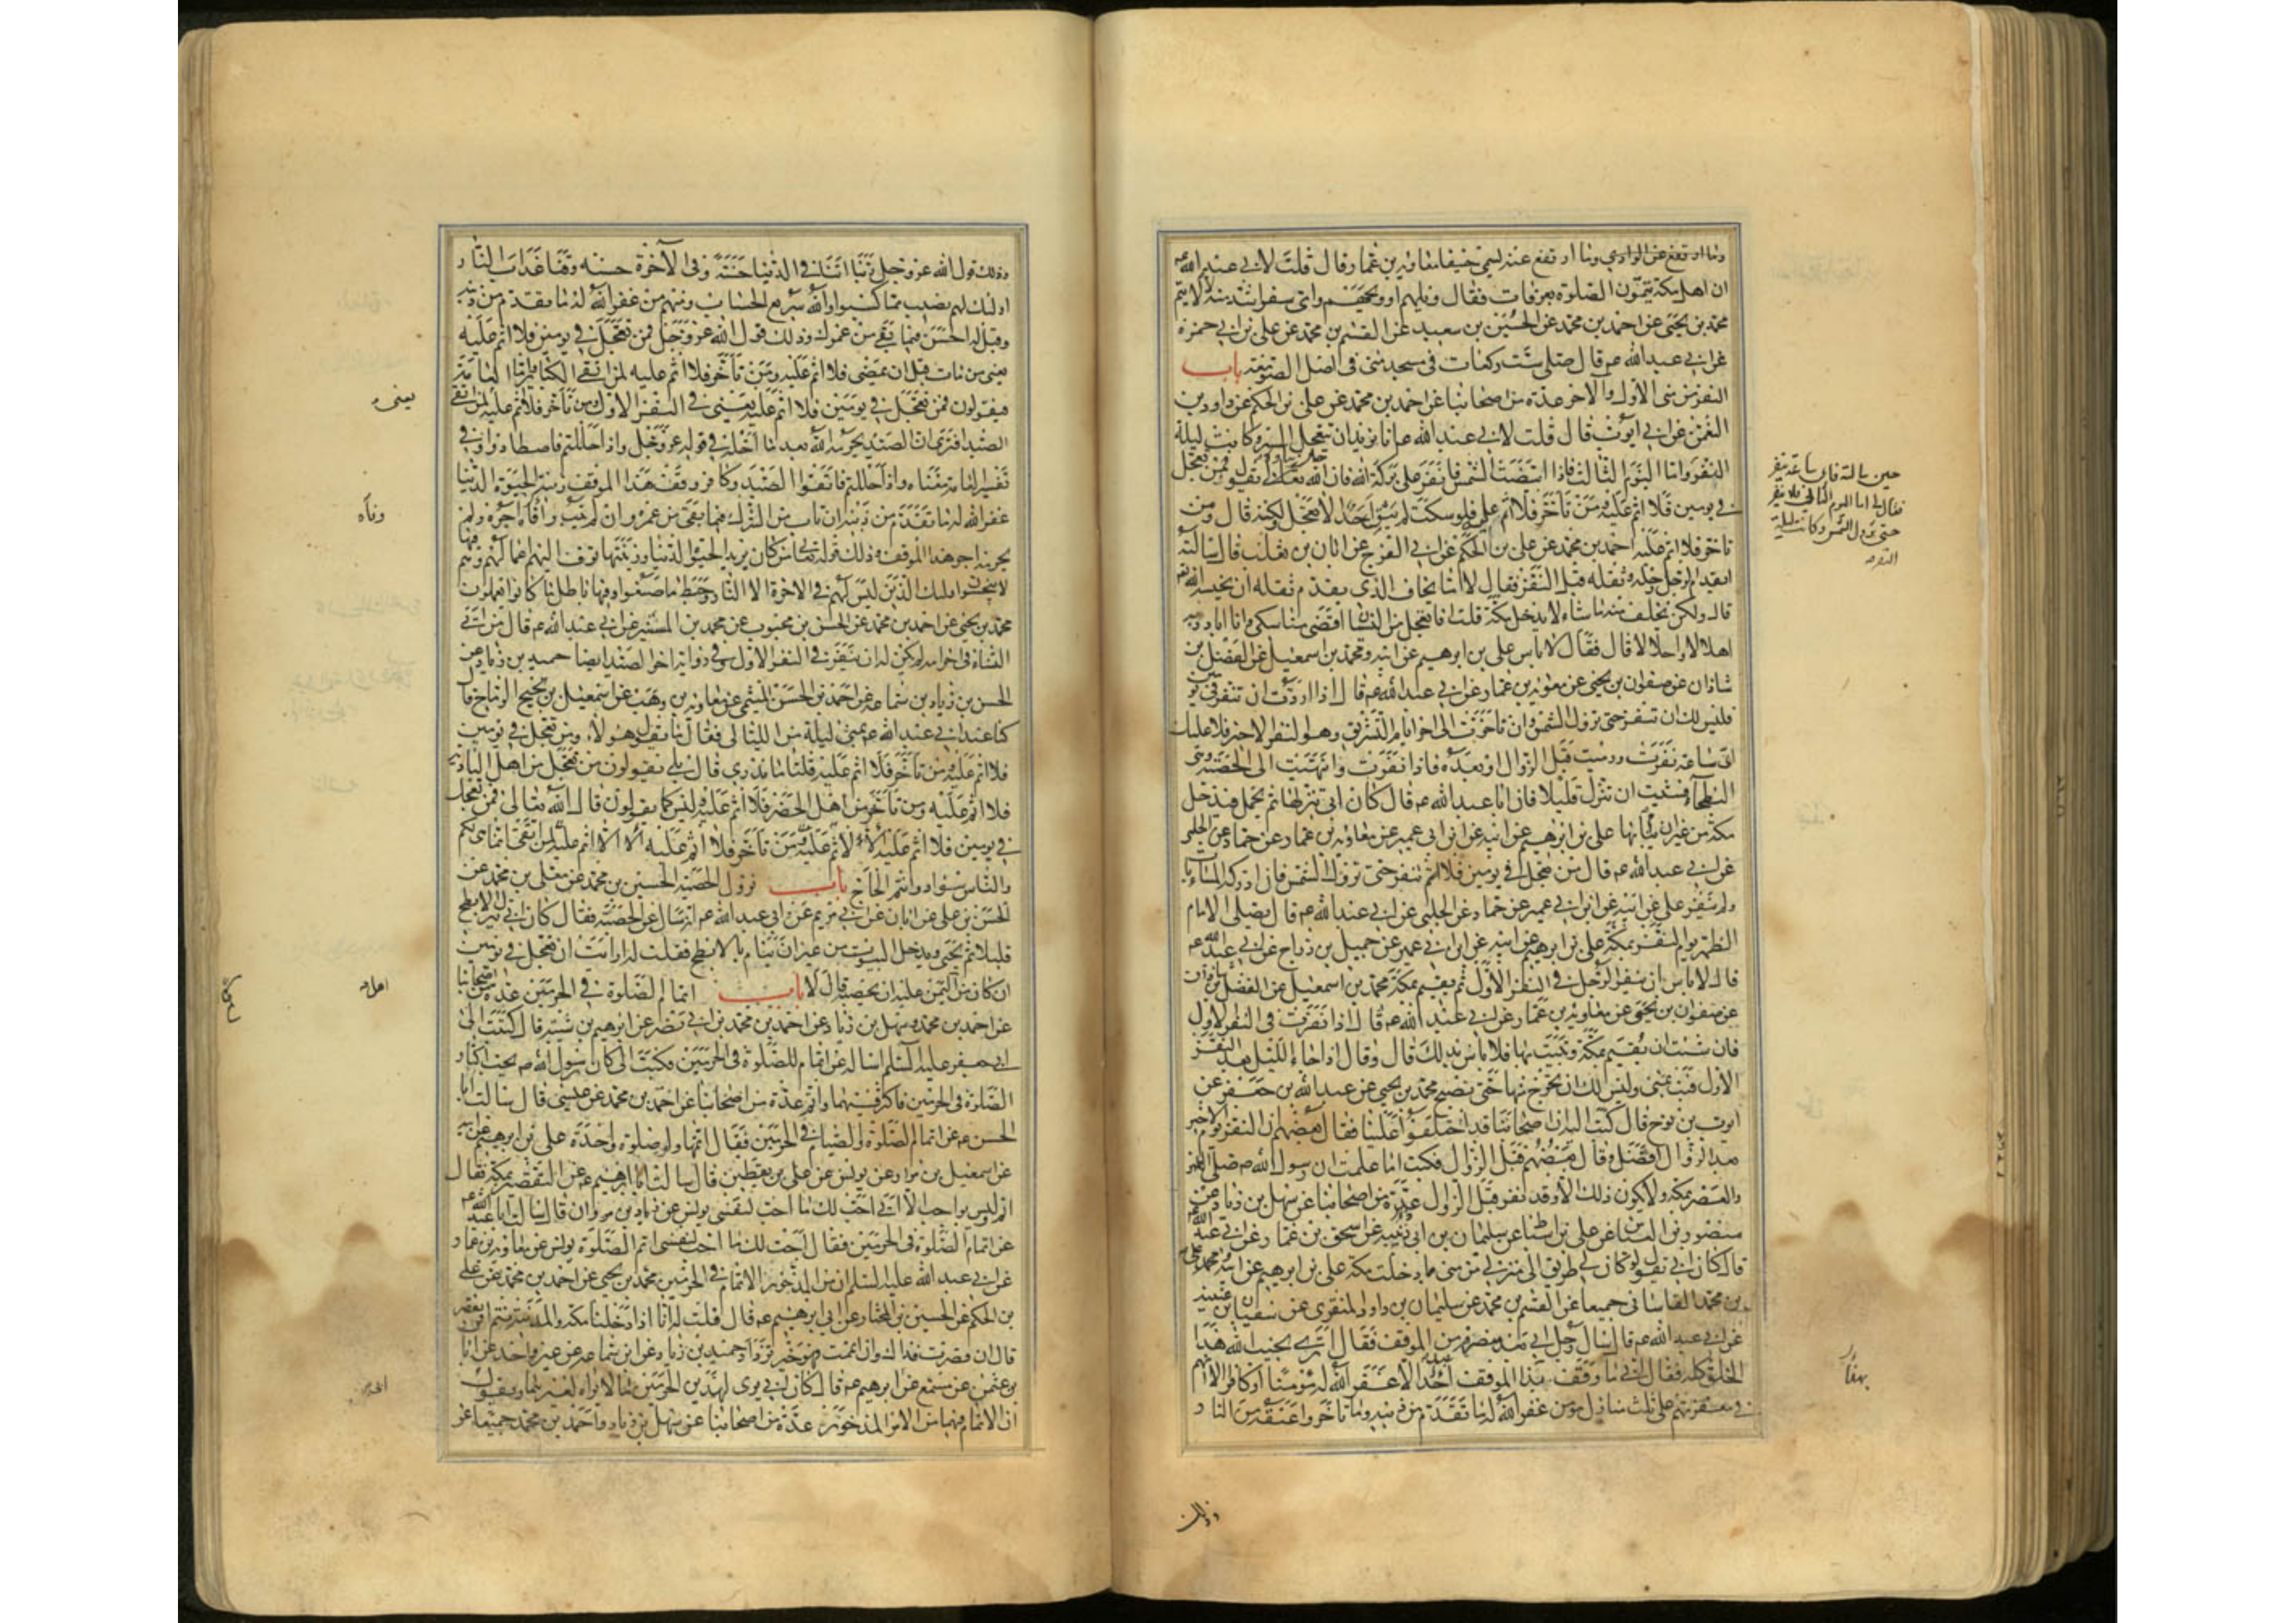 وما ارتفع عن الوادي وما ارتفع عنه لسمي خيفا معاوية بن عمار قال قلت لابي عبد الله عم
ان اهل مكة يتمون الصلوة بعرفات فقال ويلهم او ويحهم واي سفر اشد منه لا يتم
محمد بن يحيى عن احمد بن محمد عن الحسين بن سعيد عن القسم بن محمد عن علي بن ابي حمزة
عن ابي عبد الله عم قال صلي ست ركعات في مسجد منى في اصل الصومعة باب
النفر من منى الاول والآخر عدة من اصحابنا عن احمد بن محمد عن علي بن الحكم عن داود بن
النعمن عن ابي ايوب قال قلت لابي عبد الله عم انا نريد ان نتعجل السير وكانت ليلة
النفر واما اليوم الثالث فاذا ابيضت الشمس فانفر على بركة الله فان الله تعالى يقول فمن تعجل
في يومين فلا اثم عليه ومن تأخر فلا اثم عليه فلو سكت لم يبق احد الا تعجل لكنه قال ومن
تاخر فلا اثم عليه احمد بن محمد عن علي بن الحكم عن ابي الفرج عن ابان بن تغلب قال سالته
ايقدم الرجل رحله وثقله قبل النفر فقال لا اما يخاف الذي يقدم ثقله ان يحبسه الله تعالى
قال ولكن يخلف منه ما شاء لا يدخل مكة قلت افاتعجل من النسيان اقضي مناسكي وانا ابادر به
اهلالا واحلالا قال فقال لا باس علي بن ابرهيم عن ابيه ومحمد بن اسمعيل عن الفضل بن
شاذان عن صفوان بن يحيى عن معوية بن عمار عن ابي عبد الله عم قال اذا اردت ان تنفر في يومين
فليس لك ان تنفر حتى تزول الشمس وان تاخرت الى اخر ايام التشريق وهو النفر الاخير فلا عليك
اي ساعة نفرت ورميت قبل الزوال او بعده فاذا نفرت وانتهيت الى الحصبة وهي
البطحاء فشئت ان تنزل قليلا فان ابا عبد الله عم قال كان ابي ينزلها ثم يحمل فيدخل
مكة من غير ان ينام بها علي بن ابرهيم عن ابيه عن ابن ابي عمير عن معاوية بن عمار وعن حماد عن الحلبي
عن ابي عبد الله عم قال من تعجل في يومين فلا ينفر حتى تزول الشمس فان ادركه المساء بات
ولم ينفر علي عن ابيه عن ابن ابي عمير عن حماد عن الحلبي عن ابي عبد الله عم قال يصلي الامام
الظهر يوم النفر بمكة علي بن ابرهيم عن ابيه عن ابن ابي عمير عن جميل بن دراج عن ابي عبد الله عم
قال لا باس ان ينفر الرجل في النفر الاول ثم يقيم بمكة محمد بن اسمعيل عن الفضل بن شاذان
عن صفوان بن يحيى عن معاوية بن عمار عن ابي عبد الله عم قال اذا نفرت في النفر الاول
فان شئت ان تقيم بمكة وتبيت بها فلا باس بذلك قال وقال اذا جاء الليل بعد النفر
الاول فبت بمنى وليس لك ان تخرج منها حتى تصبح محمد بن يحيى عن عبد الله بن جعفر عن
ايوب بن نوح قال كتبت اليه ان اصحابنا قد اختلفوا علينا فقال بعضهم ان النفر يوم الاخير
بعد الزوال افضل وقال بعضهم قبل الزوال فكتب اما علمت ان رسول الله صم صلى الظهر
والعصر بمكة ولا يكون ذلك الا وقد نفر قبل الزوال عدة من اصحابنا عن سهل بن زياد عن
منصور بن العباس عن علي بن اسباط عن سليمان بن ابي زينبه عن اسحق بن عمار عن ابي عبد الله عم
قال كان ابي يقول لو كان لي طريق الى منزلي من منى ما دخلت مكة علي بن ابرهيم عن ابيه وعلي
بن محمد القاساني جميعا عن القسم بن محمد عن سليمان بن داود المنقري عن سفيان بن عيينه
عن ابي عبد الله عم قال سال رجل ابي بعد منصرفه من الموقف فقال اترى يخيب الله هذا
الخلق كله فقال ابي ما وقف بهذا الموقف احد الا غفر الله له مؤمنا او كافرا الا انهم
في مغفرتهم على ثلث منازل مؤمن غفر الله له ما تقدم من ذنبه وما تأخر واعتقه من النار
حين سالته فاي ساعة ننفر
فقال لي اما اليوم الثاني فلا تنفر
حتى تزول الشمس وكانت ليلة
النفر
وذلك
وذلك قول الله عز وجل ربنا اتنا في الدنيا حسنة وفي الآخرة حسنة وقنا عذاب النار
اولئك لهم نصيب مما كسبوا والله سريع الحساب ومنهم من غفر الله له ما تقدم من ذنبه
وقيل له احسن فيما بقي من عمرك وذلك قول الله عز وجل فمن تعجل في يومين فلا اثم عليه
يعني من مات قبل ان يمضي فلا اثم عليه ومن تأخر فلا اثم عليه لمن اتقى الكبائر واما العامة
فيقولون فمن تعجل في يومين فلا اثم عليه يعني في النفر الاول ومن تأخر فلا اثم عليه لمن اتقى
الصيد افترى ان الصيد يحرمه الله بعد ما احله في قوله عز وجل واذا حللتم فاصطادوا وفي
تفسير العامة معناه واذا حللتم فاتقوا الصيد وكافر وقف هذا الموقف زينة الحيوة الدنيا
غفر الله له ما تقدم من ذنبه ان تاب من الشرك فيما بقي من عمره وان لم يتب وافاه اجره ولم
يحرمه اجر هذا الموقف وذلك قوله تعالى من كان يريد الحيوة الدنيا وزينتها نوف اليهم اعمالهم فيها وهم
لا يبخسون اولئك الذين ليس لهم في الاخرة الا النار وحبط ما صنعوا فيها وباطل ما كانوا يعملون
محمد بن يحيى عن احمد بن محمد عن الحسن بن محبوب عن محمد بن المستنير عن ابي عبد الله عم قال من اتى
النساء في احرامه لم يكن له ان ينفر في النفر الاول وفي رواية اخرى الصيد ايضا حميد بن زياد عن
الحسن بن محمد بن سماعة عن احمد بن الحسن الميثمي عن معاوية بن وهب عن اسمعيل بن نجيح الرماح قال
كنا عند ابي عبد الله عم بمنى ليلة من الليالي فقال ما يقول هؤلاء ومن تعجل في يومين
فلا اثم عليه ومن تأخر فلا اثم عليه قلنا ما ندري قال بلى يقولون من تعجل من اهل البادية
فلا اثم عليه ومن تأخر من اهل الحضر فلا اثم عليه وليس كما يقولون قال الله تعالى فمن تعجل
في يومين فلا اثم عليه الا لا اثم عليه ومن تأخر فلا اثم عليه الا لا اثم عليه لمن اتقى انما هي لكم
والناس سواد وانتم الحاج باب نزول الحصبة الحسين بن محمد عن معلى بن محمد عن
الحسن بن علي عن ابان عن ابي مريم عن ابي عبد الله عم انه سال عن الحصبة فقال كان ابي ينزل الابطح
قليلا ثم يجيء ويدخل البيوت من غير ان ينام بالابطح فقلت له ارايت ان تعجل في يومين
ان كان من اليمن عليه ان يحصب قال لا باب اتمام الصلوة في الحرمين عدة من اصحابنا
عن احمد بن محمد وسهل بن زياد عن احمد بن محمد بن ابي نصر عن ابرهيم بن شيبه قال كتبت الى
ابي جعفر عليه السلم اساله عن اتمام الصلوة في الحرمين فكتب الي كان رسول الله صم يحب اكثار
الصلوة في الحرمين فاكثر فيهما واتم عدة من اصحابنا عن احمد بن محمد عن عثمن بن عيسى قال سالت ابا
الحسن عم عن اتمام الصلوة والصيام في الحرمين فقال اتمها ولو صلوة واحدة علي بن ابرهيم عن ابيه
عن اسمعيل بن مرار عن يونس عن علي بن يقطين قال سالت ابا ابرهيم عم عن التقصير بمكة فقال
اتم وليس بواجب الا اني احب لك ما احب لنفسي يونس عن زياد بن مروان قال سالت ابا عبد الله عم
عن اتمام الصلوة في الحرمين فقال احب لك ما احب لنفسي اتم الصلوة يونس عن معاوية بن عمار
عن ابي عبد الله عليه السلم ان من المذخور الاتمام في الحرمين محمد بن يحيى عن احمد بن محمد عن علي
بن الحكم عن الحسين بن المختار عن ابي ابرهيم عم قال قلت له انا اذا دخلنا مكة والمدينة نتم او نقصر
قال ان قصرت فذاك وان اتممت فهو خير تزداد حميد بن زياد عن ابن سماعة عن غير واحد عن ابان
بن عثمن عن مسمع عن ابرهيم عم قال كان ابي يرى لهذين الحرمين ما لا يراه لغيرهما ويقول
ان الاتمام فيهما من الامر المذخور عدة من اصحابنا عن سهل بن زياد واحمد بن محمد جميعا عن
يعني
وفاه